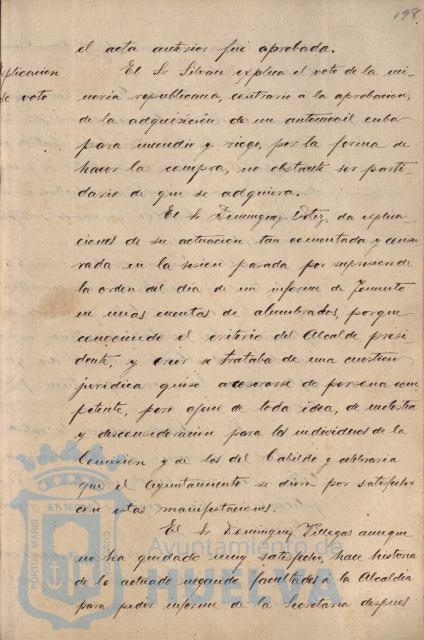 198
el acta anterior fué aprobada.
Explicacion
de voto
El Sr Silvan explica el voto de la mi-
noria republicana, contrario á la aprobacion,
de la adquisición de un automovil cuba
para incendio y riego, por la forma de
hacer la compra, no obstante ser parti-
dario de que se adquiera.
El Sr Dominguez Ortiz, da explica-
ciones de su actuacion tan comentada y censu-
rada en la sesion pasada por supresion de
la orden del dia de un informe de Fomento
en unas cuentas de alumbrados, porque
conociendo el criterio del Alcalde presi-
dente, y creer se trataba de una cuestion
juridica quiso asesorarse de persona com
petente, pero ajeno de toda idea, de molestia
y desconsideración para los individuos de la
Comision y de los del Cabildo y celebraria
que el Ayuntamiento se diera por satisfecho
con estas manifestaciones.
El Sr Dominguez Villegas aunque
no ha quedado muy satisfecho, hace historia
de lo actuado negando facultades á la Alcaldia
para pedir informe de la Secretaria despues
PORTUS MARIS
Ayuntamiento de
HUELVA